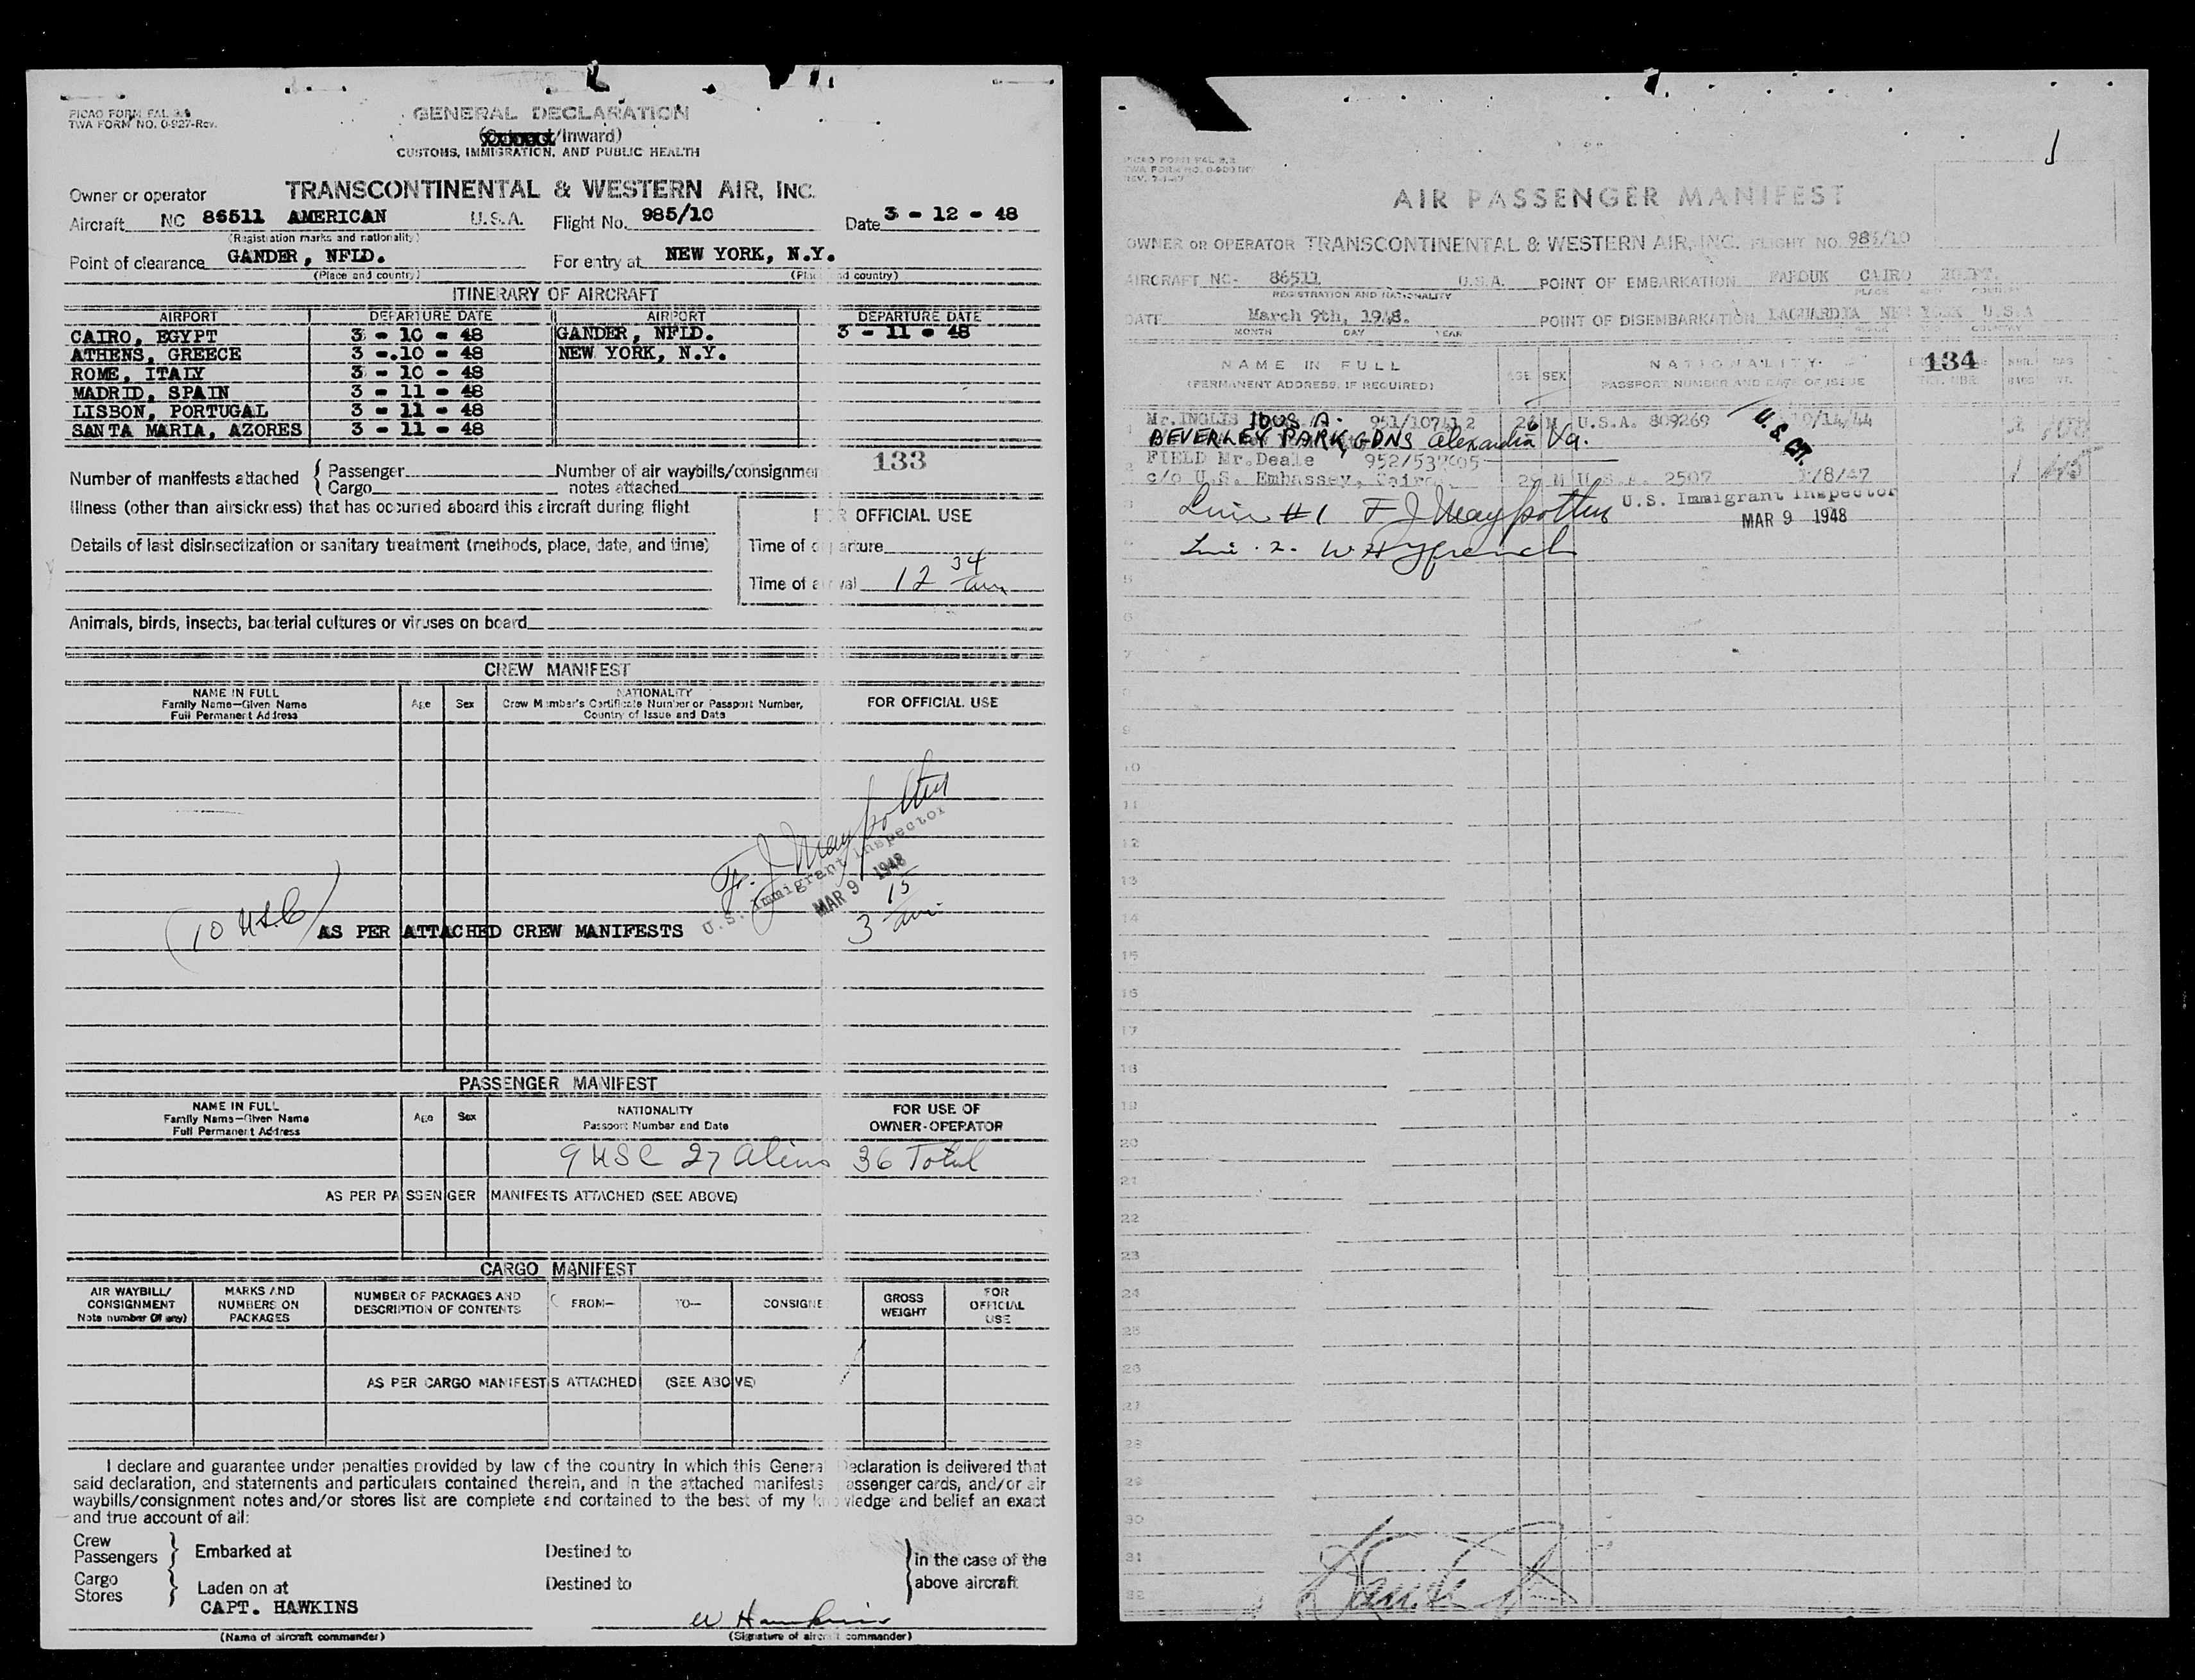 PICAO FORM FAL 2.1
TWA FORM NO. 0-927-Rev.
GENERAL DECLARATION
/Inward)
CUSTOMS, IMMIGRATION, AND PUBLIC HEALTH
Owner or operator TRANSCONTINENTAL & WESTERN AIR, INC.
Aircraft NC 86511 AMERICAN U.S.A. Flight No. 985/10 Date 3 - 12 - 48
(Registration marks and nationality)
Point of clearance GANDER, NFLD. For entry at NEW YORK, N.Y.
(Place and country) (Place and country)
ITINERARY OF AIRCRAFT
AIRPORT DEPARTURE DATE AIRPORT DEPARTURE DATE
CAIRO, EGYPT 3 - 10 - 48 GANDER, NFLD. 3 - 11 - 48
ATHENS, GREECE 3 -.10 - 48 NEW YORK, N.Y.
ROME, ITALY 3 - 10 - 48
MADRID, SPAIN 3 - 11 - 48
LISBON, PORTUGAL 3 - 11 - 48
SANTA MARIA, AZORES 3 - 11 - 48
133
Number of manifests attached { Passenger Number of air waybills/consignment
Cargo notes attached
Illness (other than airsickness) that has occurred aboard this aircraft during flight
FOR OFFICIAL USE
Details of last disinsectization or sanitary treatment (methods, place, date, and time)
Time of departure
Time of arrival 12 34 am
Animals, birds, insects, bacterial cultures or viruses on board
CREW MANIFEST
NAME IN FULL Age Sex NATIONALITY FOR OFFICIAL USE
Family Name—Given Name Crew Member's Certificate Number or Passport Number,
Full Permanent Address Country of Issue and Date
F. J. Maypother
U.S. Immigrant Inspector
MAR 9 1948
3 15 am
(10 USC) AS PER ATTACHED CREW MANIFESTS
PASSENGER MANIFEST
NAME IN FULL Age Sex NATIONALITY FOR USE OF
Family Name—Given Name Passport Number and Date OWNER-OPERATOR
Full Permanent Address
9 USC 27 aliens 36 Total
AS PER PASSENGER MANIFESTS ATTACHED (SEE ABOVE)
CARGO MANIFEST
AIR WAYBILL/ MARKS AND NUMBER OF PACKAGES AND FROM— TO— CONSIGNEE GROSS FOR
CONSIGNMENT NUMBERS ON DESCRIPTION OF CONTENTS WEIGHT OFFICIAL
Note number (if any) PACKAGES USE
AS PER CARGO MANIFESTS ATTACHED (SEE ABOVE)
I declare and guarantee under penalties provided by law of the country in which this General Declaration is delivered that
said declaration, and statements and particulars contained therein, and in the attached manifests passenger cards, and/or air
waybills/consignment notes and/or stores list are complete and contained to the best of my knowledge and belief an exact
and true account of all:
Crew
Passengers } Embarked at Destined to } in the case of the
Cargo
Stores } Laden on at Destined to above aircraft
CAPT. HAWKINS W Hawkins
(Name of aircraft commander) (Signature of aircraft commander)
PICAO FORM FAL 2.2
REV. 7-1-47
AIR PASSENGER MANIFEST
OWNER OR OPERATOR TRANSCONTINENTAL & WESTERN AIR, INC. FLIGHT NO. 985/10
AIRCRAFT NC- 86511 U.S.A. POINT OF EMBARKATION FAROUK CAIRO EGYPT.
REGISTRATION AND NATIONALITY PLACE AND COUNTRY
DATE March 9th, 1948. POINT OF DISEMBARKATION LAGUARDIA NEW YORK U.S.A
MONTH DAY YEAR
NAME IN FULL AGE SEX NATIONALITY 134
(PERMANENT ADDRESS, IF REQUIRED) PASSPORT NUMBER AND DATE OF ISSUE
1 Mr. INGLIS A. 26 M U.S.A. 809269 10/14/44
BEVERLEY PARK GDNS Alexandria Va.
U.S. CT.
2 FIELD Mr.Deale
c/o U.S. Embassey, Cairo M U.S.A. 2507 /8/47 1 45
3 Line #1 F J Maypother U.S. Immigrant Inspector
MAR 9 1948
4 Line . 2. W. H.
5
6
7
8
9
10
11
12
13
14
15
16
17
18
19
20
21
22
23
24
25
26
27
28
29
30
31
32